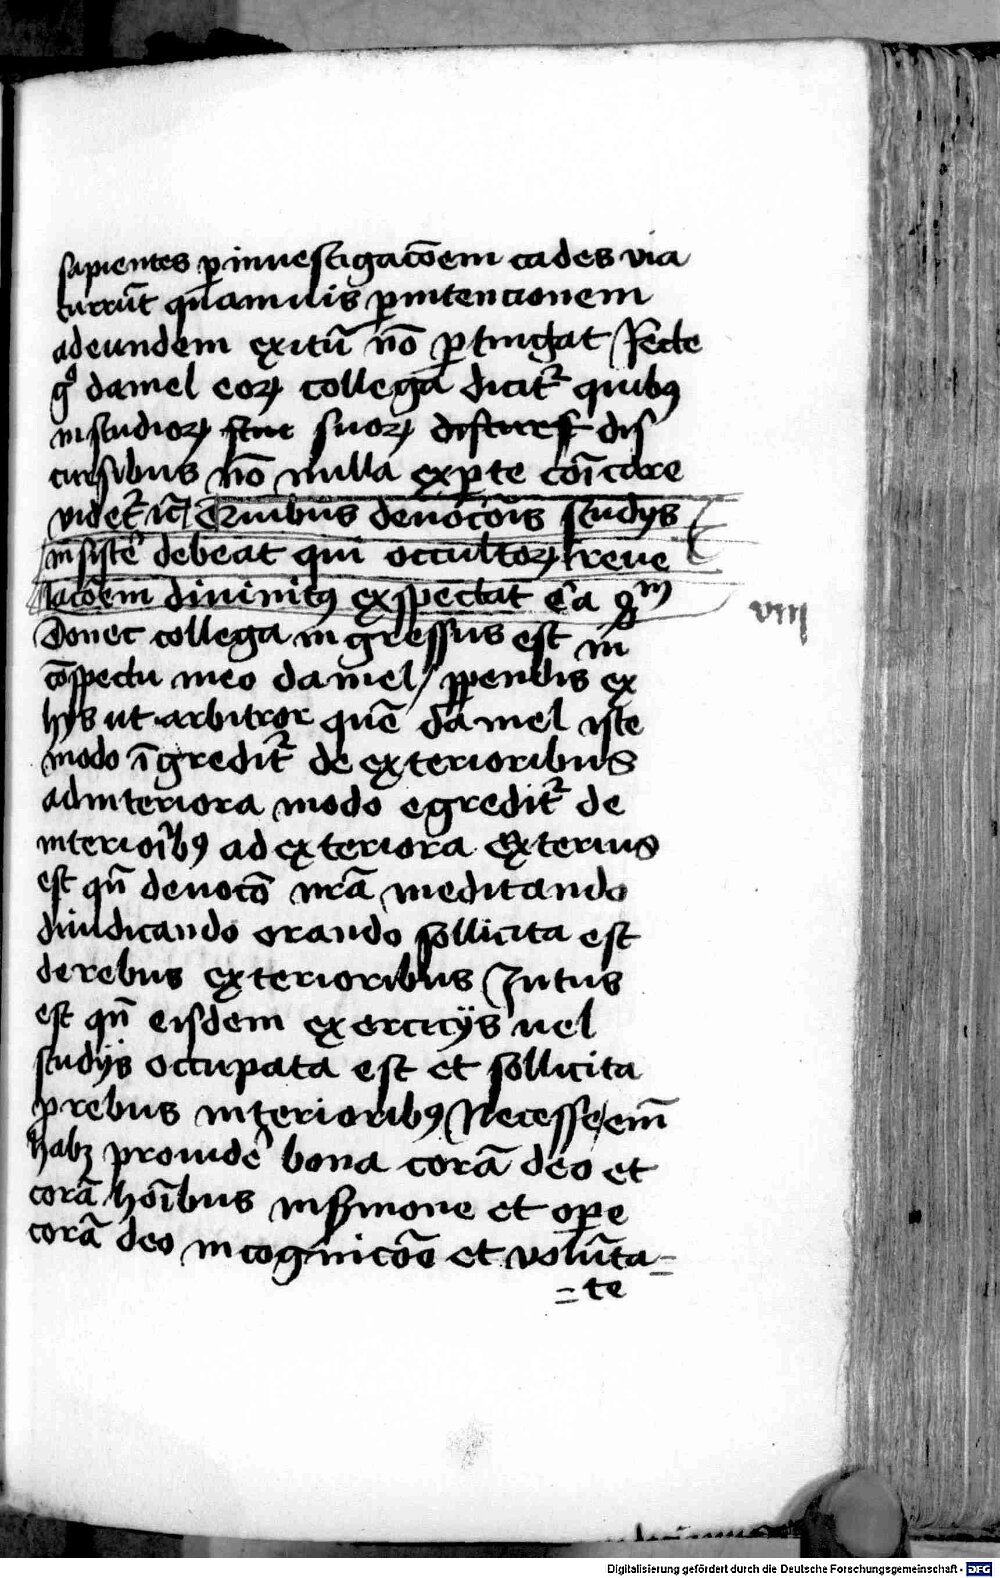 sapientes ꝑ inuestigacōem eades via
currūt quamuis ꝑ intencionem
ad eundem exitū nō ꝑtingāt Recte
gͦ daniel eoꝝ collega dicit᷑ quibꝰ
in studioꝝ suoꝝ dis
cursibus nō nulla ex ꝑte cōīcare
videt᷑
Quibus deuocōis studijs
insiste᷑ debeat qui occultoꝝ reue
lacōem diuinitꝰ exspectat
viij
Donec collega ingressus est in
cōspectu meo daniel / ꝑpendis ex
hijs ut arbitror quē daniel iste
modo īgredit᷑ de exterioribus
ad interiora modo egredit᷑ de
interioribꝰ ad exteriora Exterius
est qn̄ deuocō nr̄a meditando
diiudicando orando sollicita est
de rebus exterioribus Intus
est qn̄ eisdem exercicijs uel
studijs occupata est et sollicita
ꝓ rebus interioribꝰ Necesse em̄
habꝫ prouide᷑ bona corā deo et
corā hoībus in s̄mone et oꝑe
corā deo in cognicōe et volūta=
=te